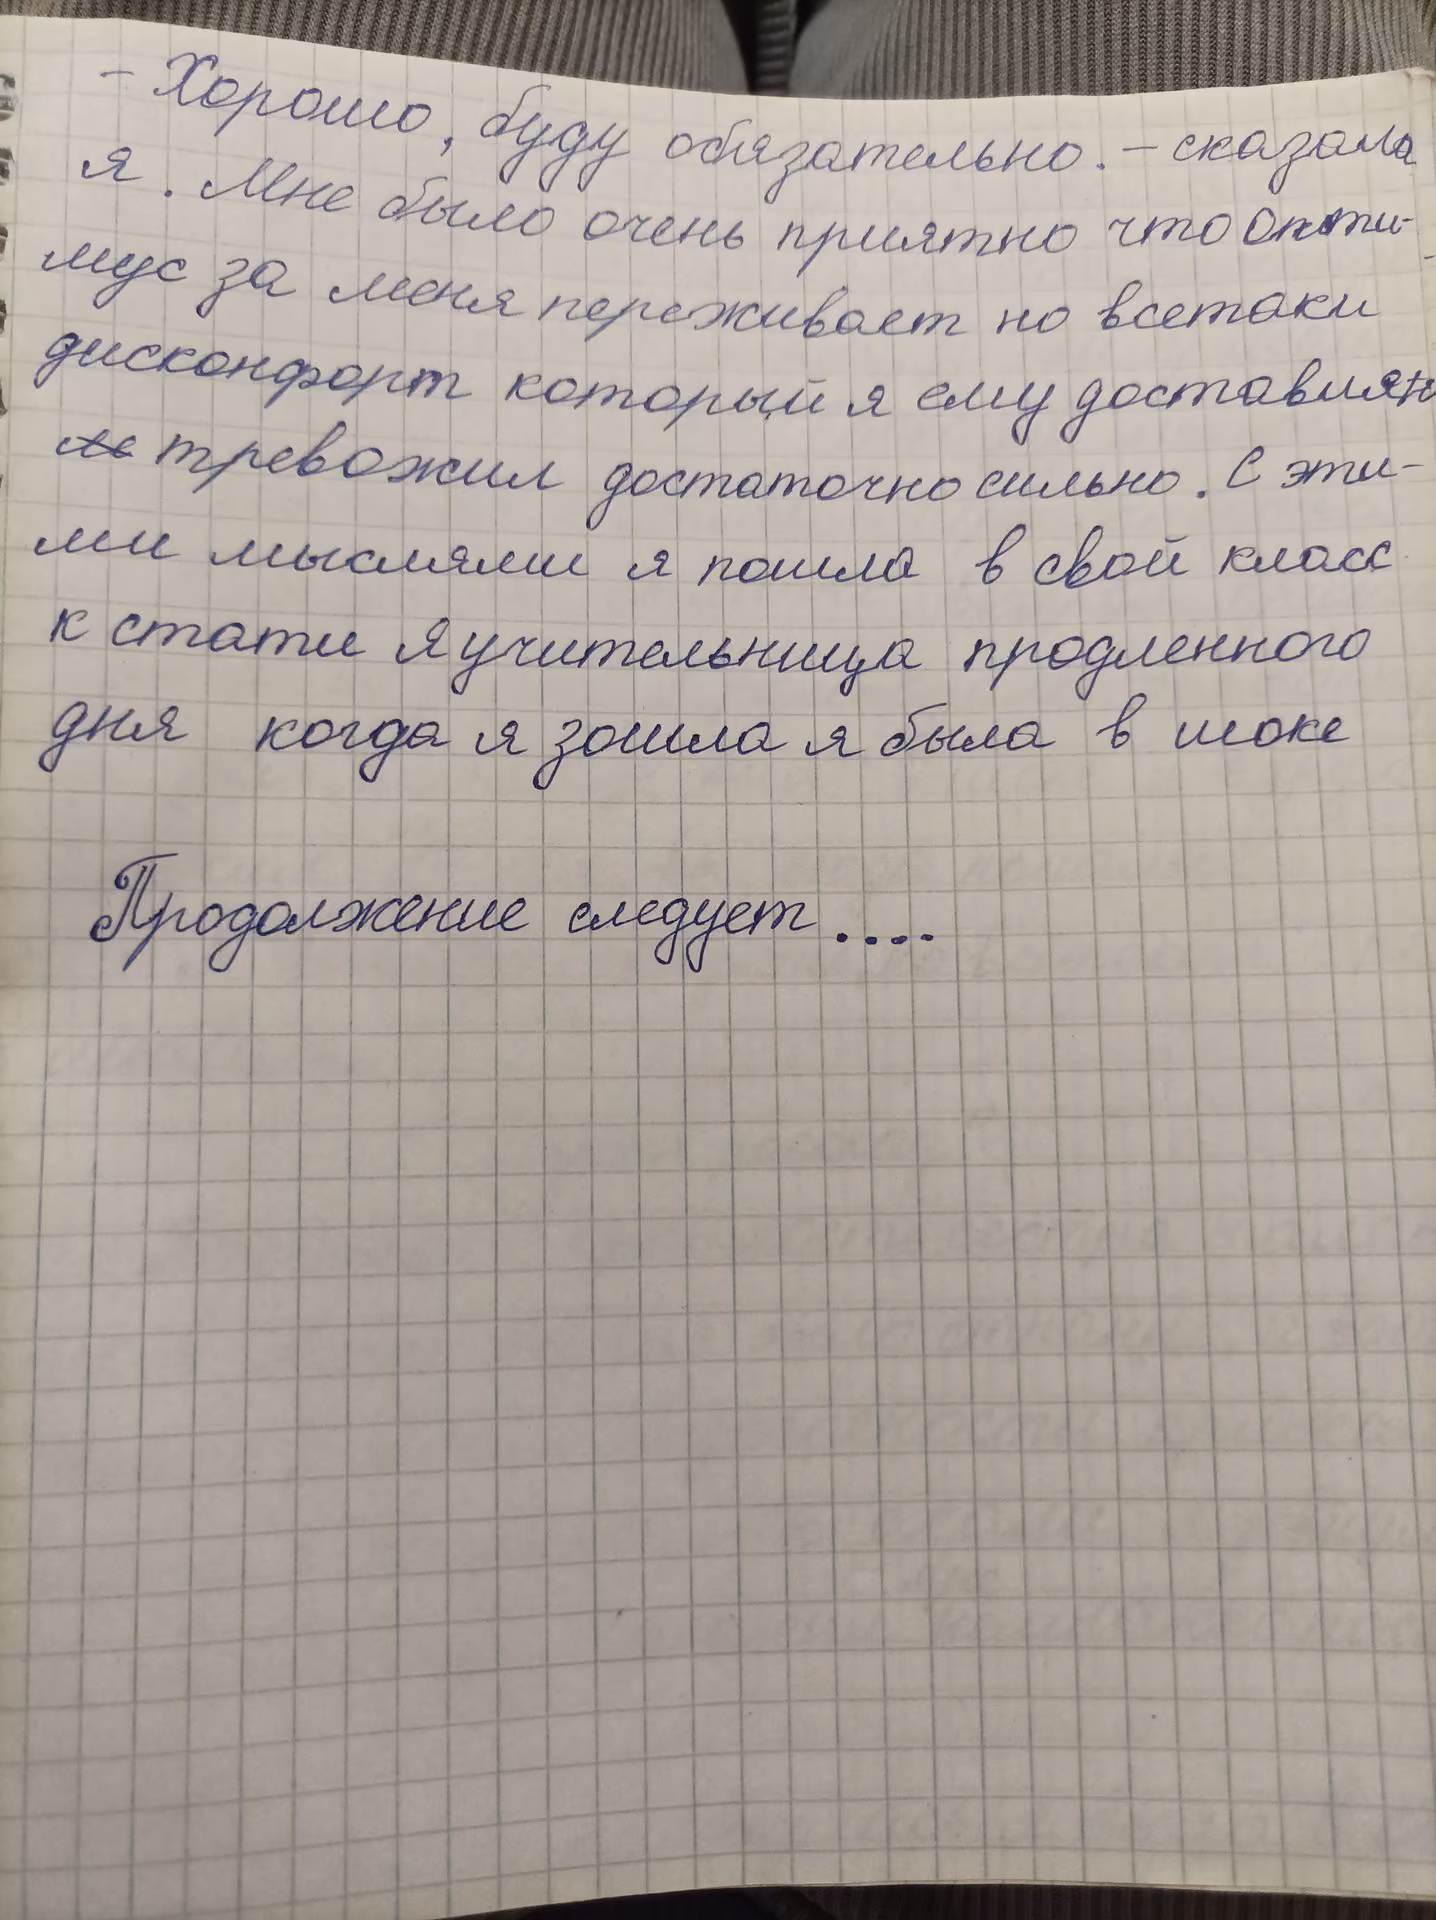 - Хорошо, буду обязательно. - сказала
я. Мне было очень приятно что Опти-
мус за меня переживает но всетаки
дисконфорт который я ему доставляю
тревожил достаточно сильно. С эти-
ми мыслями я пошла в свой класс
к стати я учительница продленного
дня когда я зошла я была в шоке
Продолжение следует....